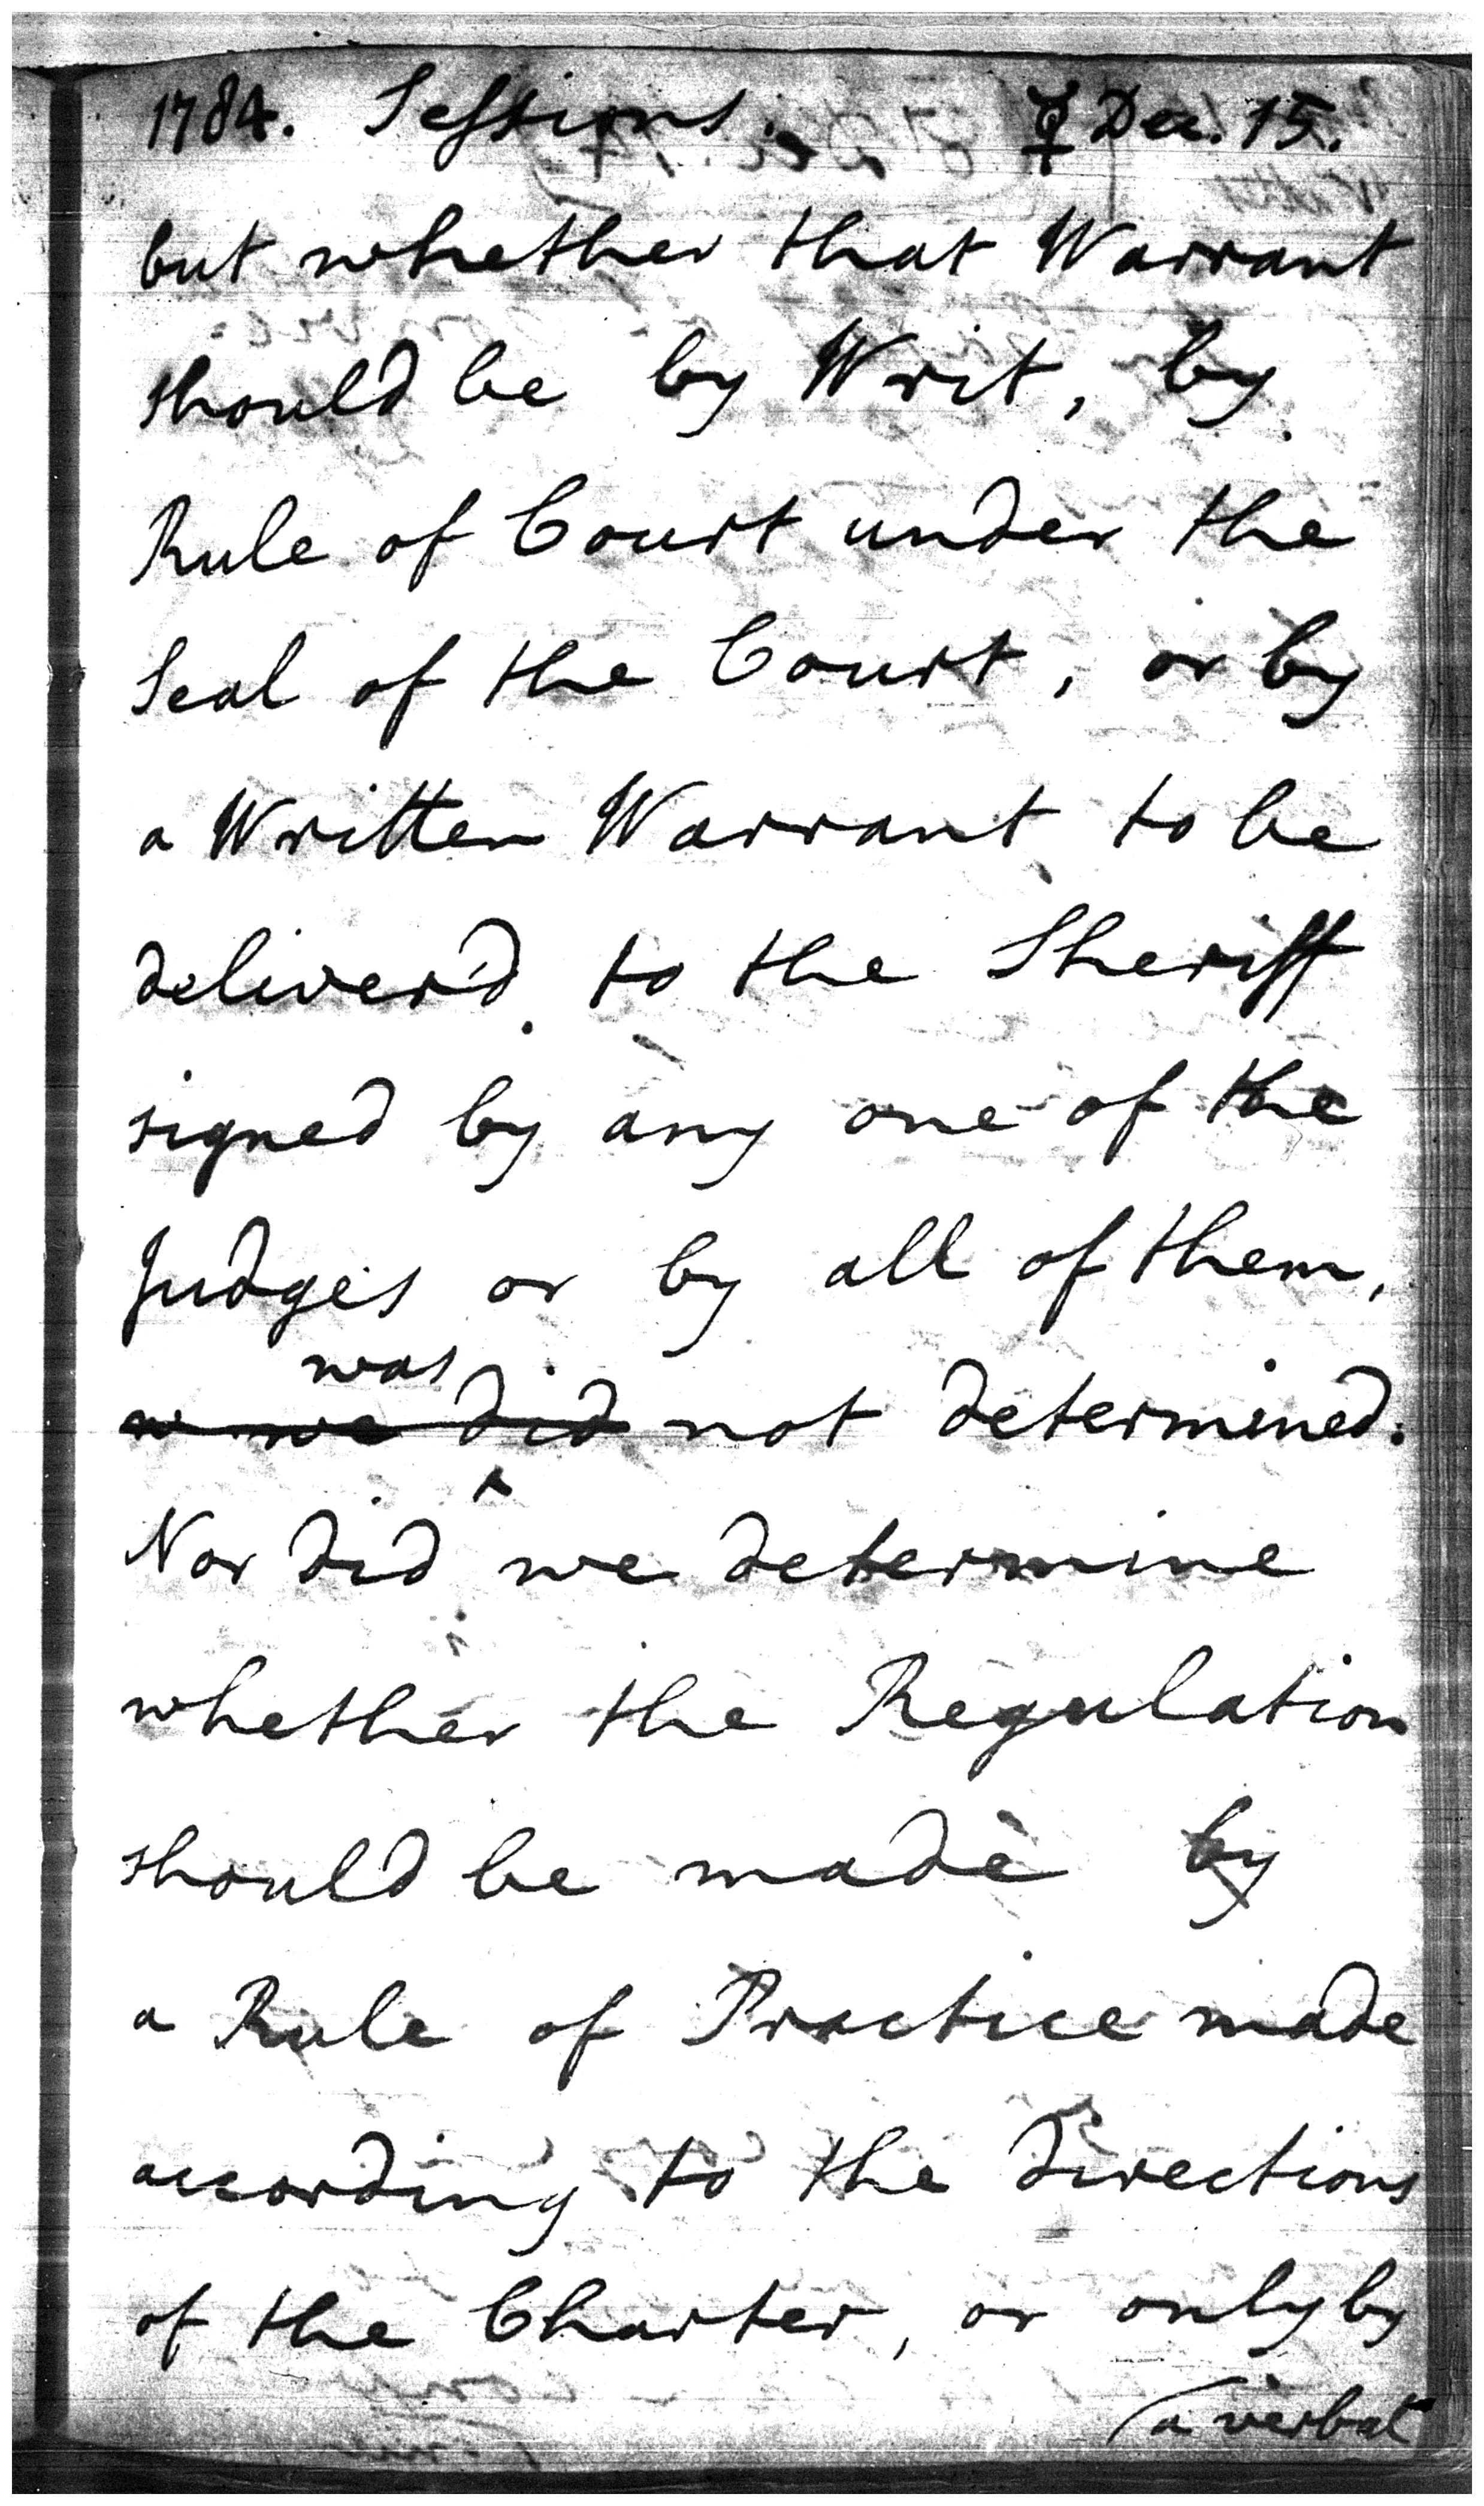 1784. Sessions. ☿ Dec. 15.
but whether that Warrant
should be by Writ, by
Rule of Court under the
Seal of the Court, or by
a Written Warrant to be
deliver'd to the Sheriff
signed by any one of the
Judges or by all of them,
was
w we did not determined.
Nor did we determine
whether the Regulation
should be made by
a Rule of Practice made
according to the directions
of the Charter, or only by
a verbal